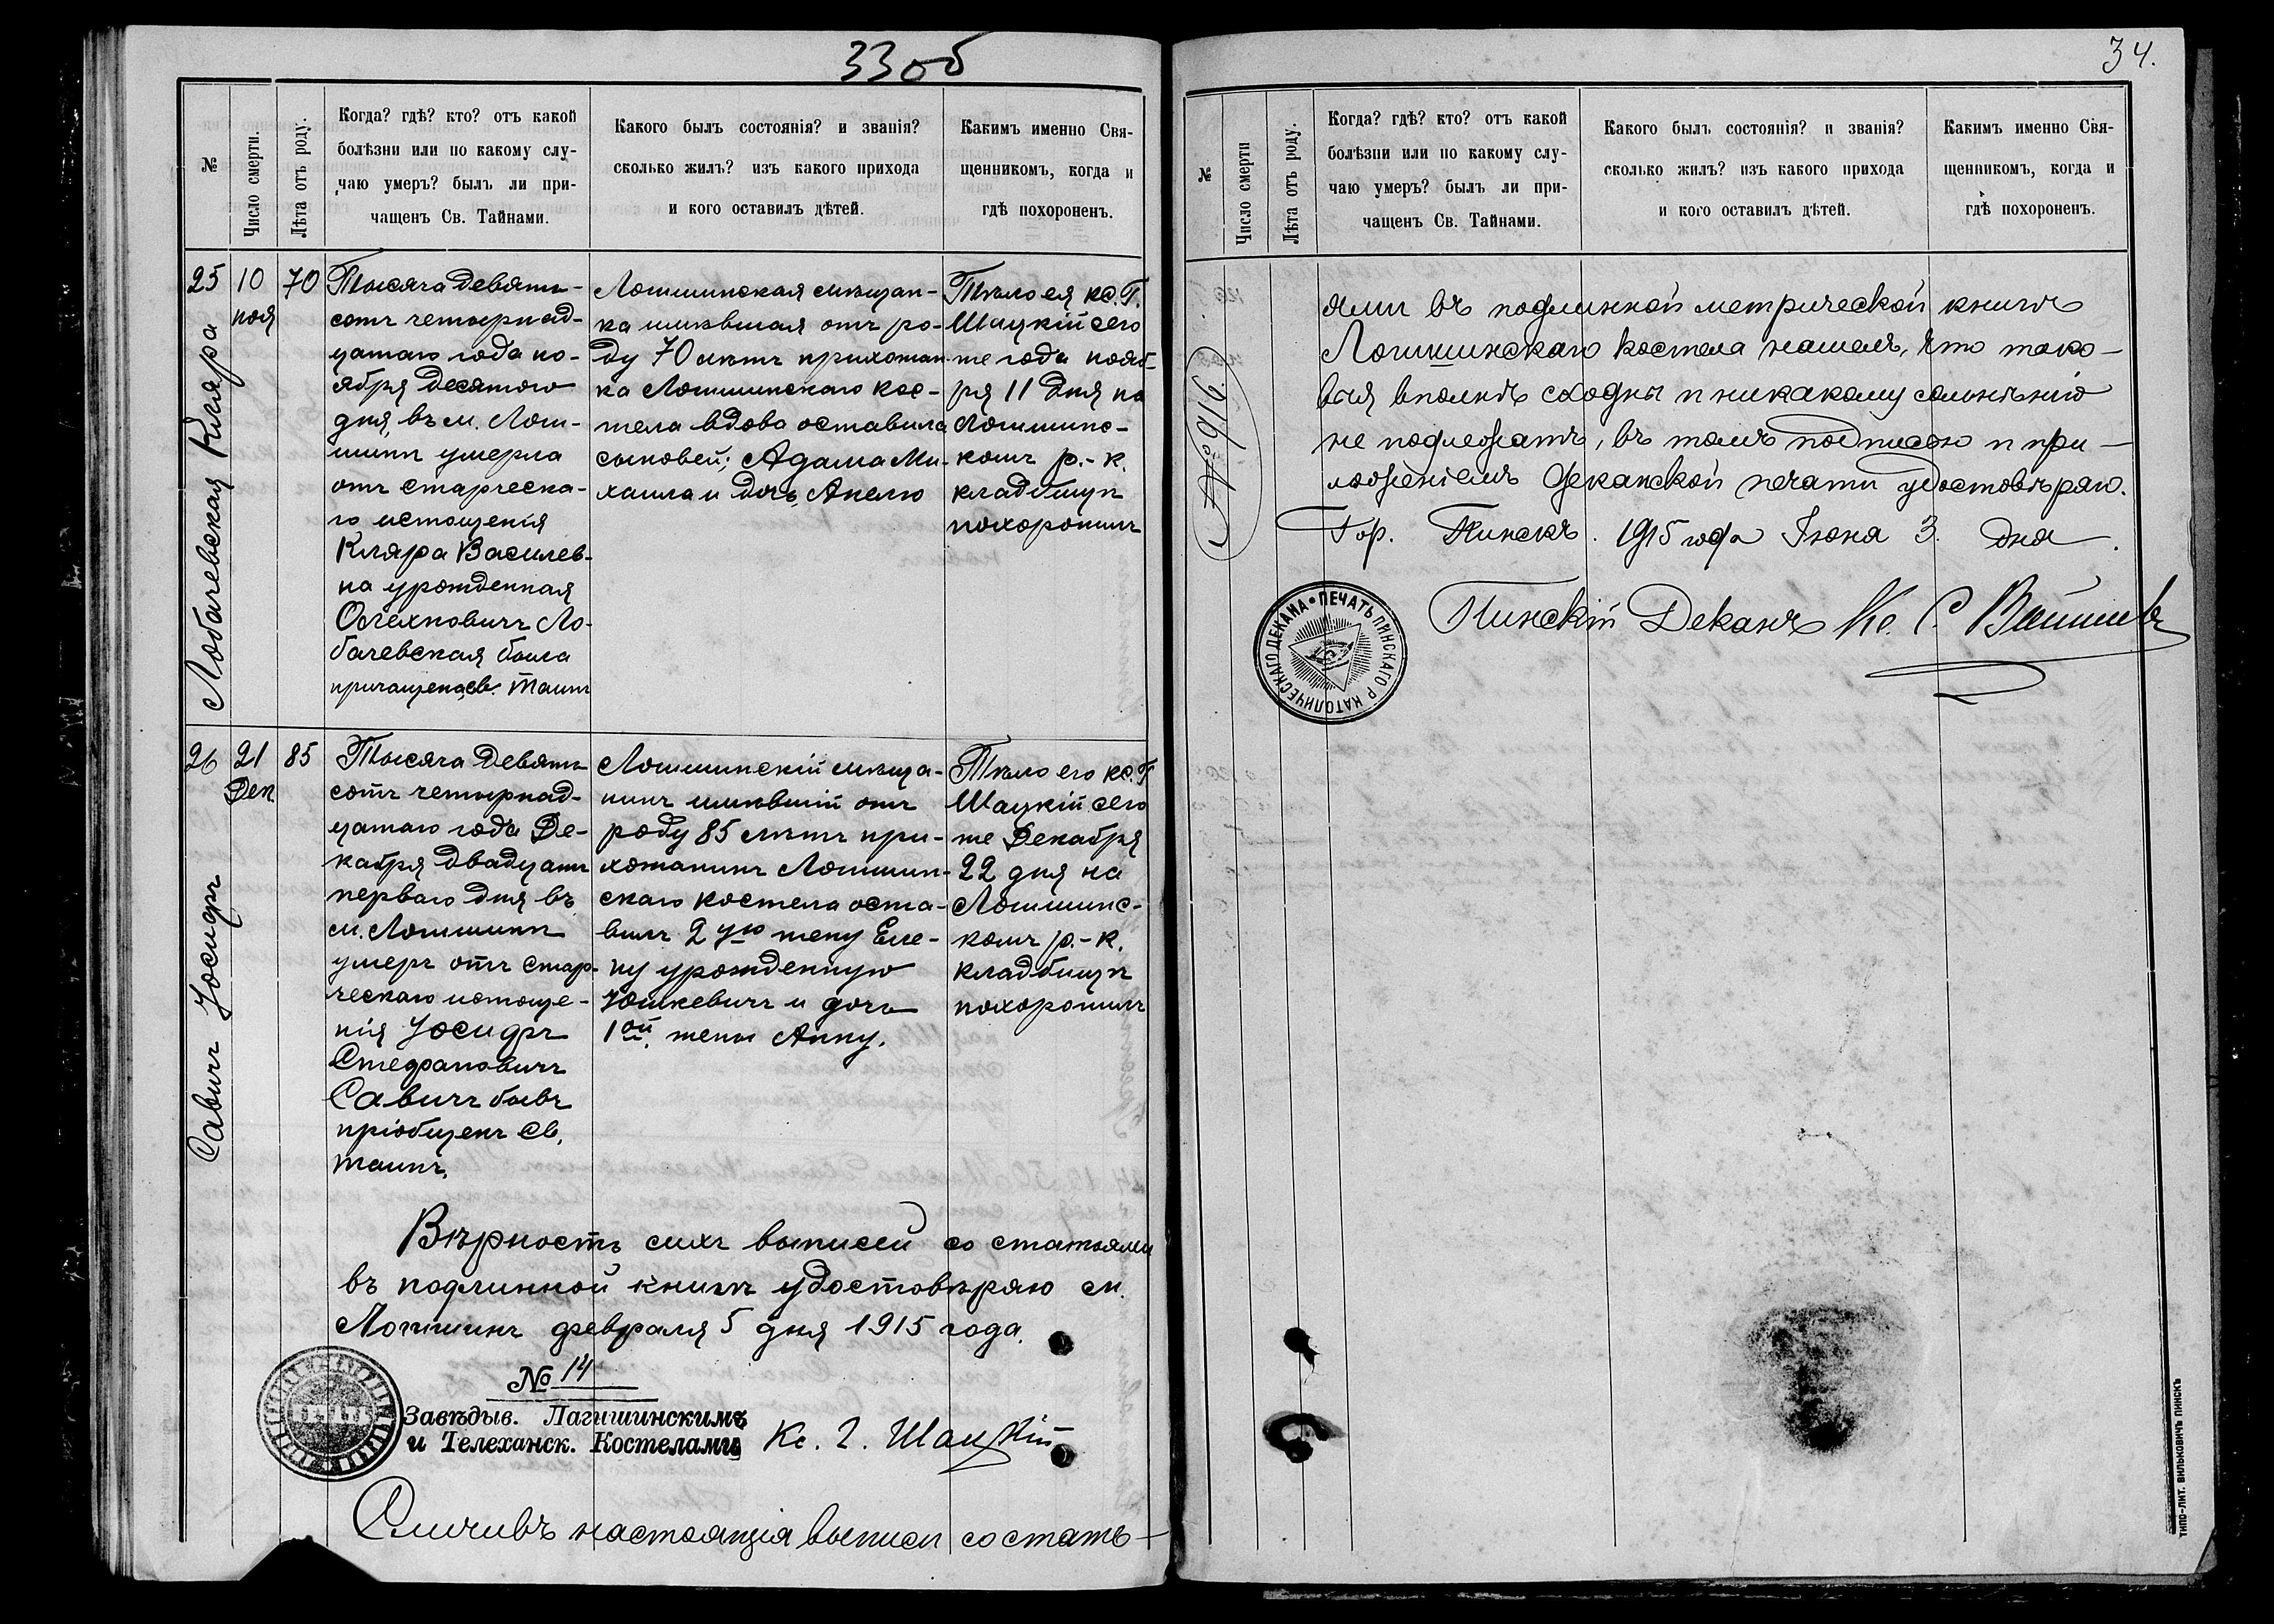 33об
№
Число смерти.
Лѣта отъ роду.
Когда? гдѣ? кто? отъ какой
болѣзни или по какому слу-
чаю умеръ? былъ ли при-
чащенъ Св. Тайнами.
Какого былъ состоянія? и званія?
сколько жилъ? изъ какого прихода
и кого оставилъ дѣтей.
Какимъ именно Свя-
щенникомъ, когда и
гдѣ похороненъ.
25
Лобачевская Кляра
10
ноя
70
Тысяча девять-
сотъ четырнад-
цатаго года но-
ября десятого
дня, въ м. Логи-
шинѣ умерла
отъ старческа-
го истощенія
Кляра Василев-
на урожденная
Ло-
бачевская была
причащена св. таинъ
Логишинская мѣщан-
ка имѣвшая отъ ро-
ду 70 лѣтъ прихожан-
ка Логишинскаго кос-
тела вдова оставила
сыновей; Адама Ми-
хаила и дочь Анелю
Тѣло ея кс. Г.
Шацкій сего
же года нояб-
ря 11 дня на
Логишинс-
комъ р.-к.
кладбищѣ
похоронилъ
26
Савичъ Іосифъ
21
Дек
85
Тысяча девять
сотъ четырнад-
цатаго года Де-
кабря двадцать
перваго дня въ
м. Логишинѣ
умеръ отъ стар-
ческаго истоще-
нія Іосифъ
Стефановичъ
Савичъ бывъ
пріобщенъ св.
таинъ.
Логишинскій мѣща-
нинъ имѣвшій отъ
роду 85 лѣтъ при-
хожанинъ Логишин-
скаго костела оста-
вилъ 2ую жену Еле-
ну урожденную
Юшкевичъ и дочь
1ой жены Анну.
Тѣло его кс. Г.
Шацкій сего
же Декабря
22 дня на
Логишинс-
комъ р.-к.
кладбищѣ
похоронилъ
Вѣрность сихъ выписей со статьями
въ подлинной книгѣ удостовѣряю м.
Логишинъ февраля 5 дня 1915 года.
№ 14
Завѣдыв. Лагишинскимъ
и Телеханск. Костелами
Кс. Г. Шацкій
Сличивъ настоящія выписи со стать-
34.
№
Число смерти
Лѣта отъ роду.
Когда? гдѣ? кто? отъ какой
болѣзни или по какому слу-
чаю умеръ? былъ ли при-
чащенъ Св. Тайнами.
Какого былъ состоянія? и званія?
сколько жилъ? изъ какого прихода
и кого оставилъ дѣтей.
Какимъ именно Свя-
щенникомъ, когда и
гдѣ похороненъ.
№ 916.
ями въ подлинной метрической книгѣ
Логишинскаго костела нашелъ, что тако-
выя вполнѣ сходны и никакому сомнѣнію
не подлежатъ, въ томъ подписью и при-
ложеніемъ Деканской печати удостовѣряю.
Гор. Пинскъ. 1915 года Іюня 3 дня.
ПЕЧАТЬ ПИНСКАГО Р. КАТОЛИЧЕСКАГО ДЕКАНА
Пинскій Деканъ Кс. С.
ТИПО-ЛИТ. ВИЛЬКОВИЧЪ ПИНСКЪ